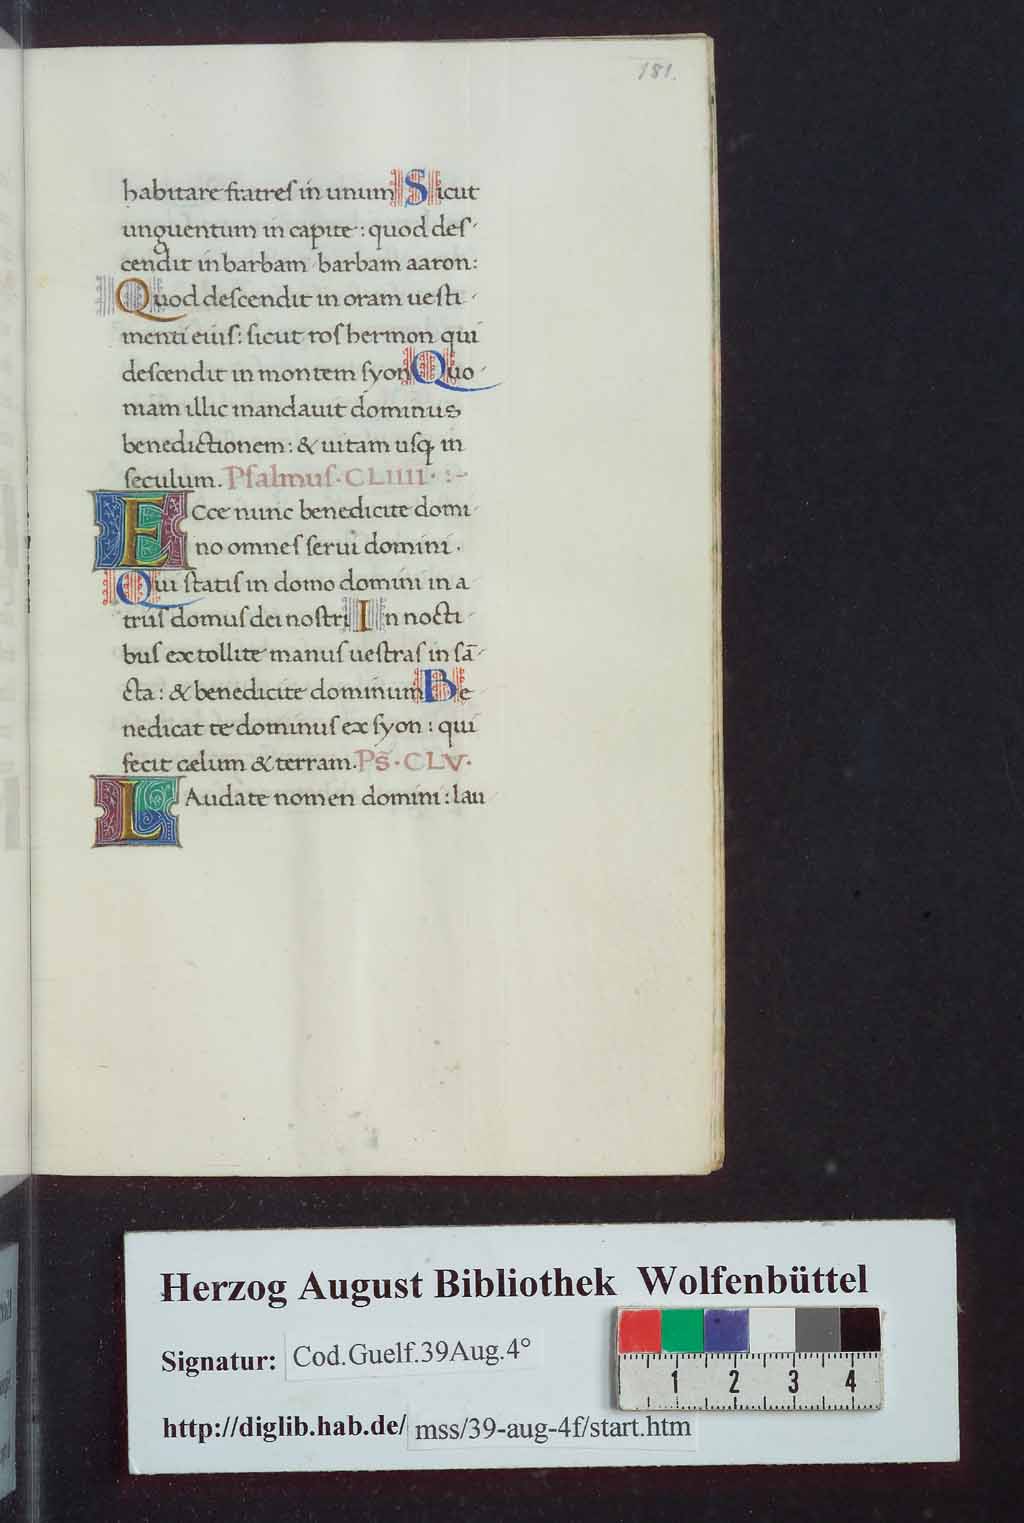 181.
habitare fratreſ in unum Sicut
unguentum in capite : quod deſ-
cendit in barbam barbam aaron:
Quod deſcendit in oram ueſti-
menti eiuſ: ſicut roſ hermon qui
deſcendit in montem ſyon Quo-
niam illic mandauit dominus
benedictionem : & uitam uſq; in
ſeculum. Pſalmuſ · CLIIII · :-
ECce nunc benedicite domi-
no omneſ ſerui domini .
Qui ſtatiſ in domo domini in a-
triiſ domuſ dei noſtri In nocti-
buſ extollite manuſ ueſtraſ in ſā-
cta : & benedicite dominum Be-
nedicat te dominuſ ex ſyon : qui
fecit cęlum & terram. Ps̄ · CLV ·
LAudate nomen domini : lau
Herzog August Bibliothek Wolfenbüttel
Signatur: Cod.Guelf.39Aug.4°
http://diglib.hab.de/ mss/39-aug-4f/start.htm
1 2 3 4